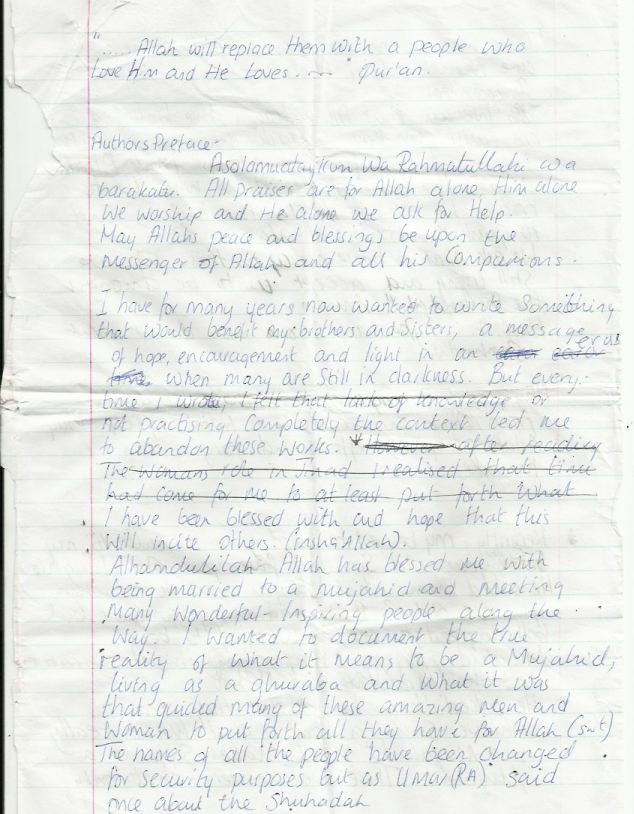 "..... Allah will replace them with a people who
Love Him and He Loves. ~~ " Qur'an.
Authors Preface -
Asolomualaykum Wa Rahmatullahi wa
barakatu. All praises are for Allah alone, Him alone
We worship and He alone we ask for Help.
May Allahs peace and blessings be upon the
Messenger of Allah and all his Companions.
I have for many years now wanted to write Something
that would benefit my brothers and Sisters, a message
of hope, encouragement and light in an era
when many are still in darkness. But every
time I wrote, I felt that lack of knowledge or
not practising completely the context led me
to abandon these works. However after reading
The womans role in Jihad I realised that time
had come for me to at least put forth what
I have been blessed with and hope that this
will incite others. (insha'Allah).
Alhamdulilah Allah has blessed me with
being married to a mujahid and meeting
Many Wonderful - Inspiring people along the
way. I wanted to document the true
reality of what it means to be a Mujahid,
living as a ghuraba and what it was
that guided many of these amazing Men and
Woman to put forth all they have for Allah (swt)
The names of all the people have been changed
for security purposes but as Umar (RA) said
once about the Shuhadah